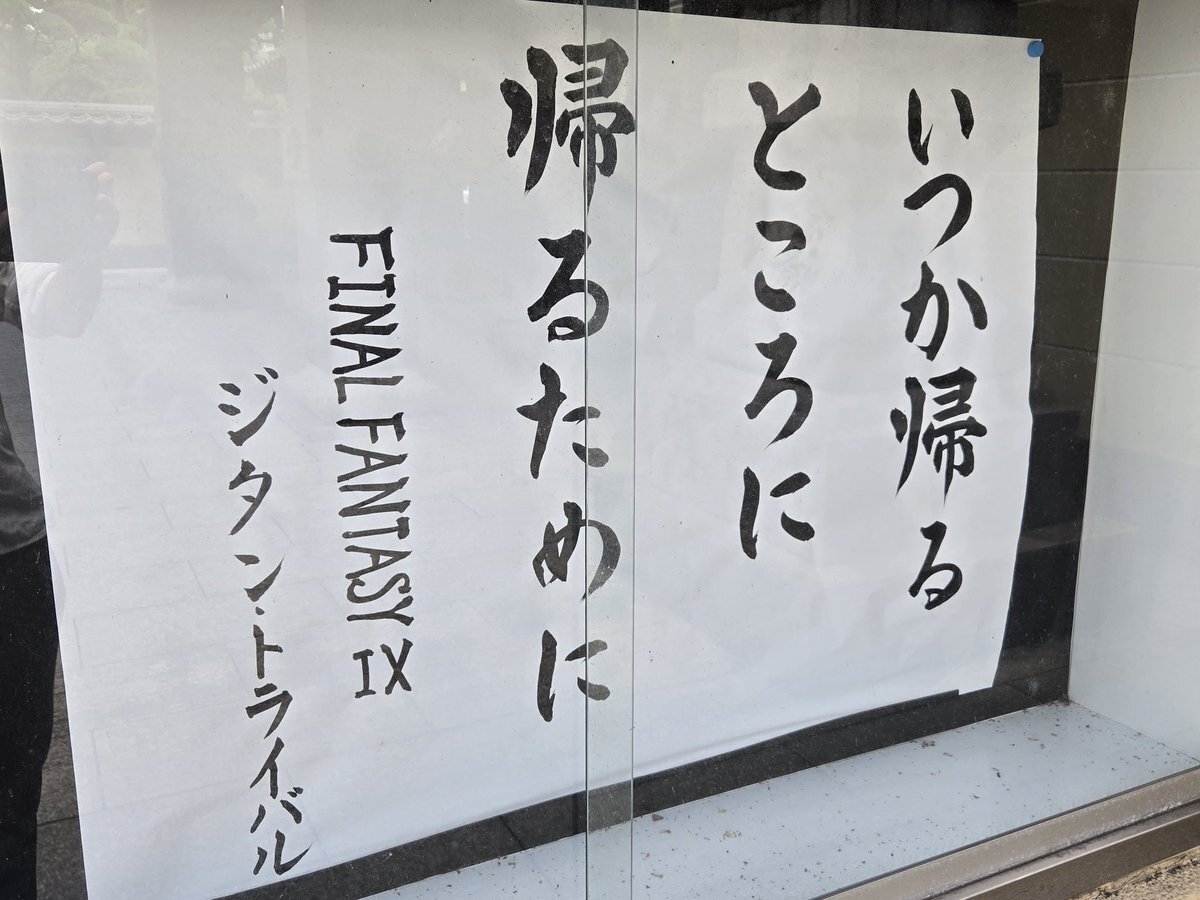 いつか帰る
ところに
帰るために
FINAL FANTASY IX
ジタン・トライバル